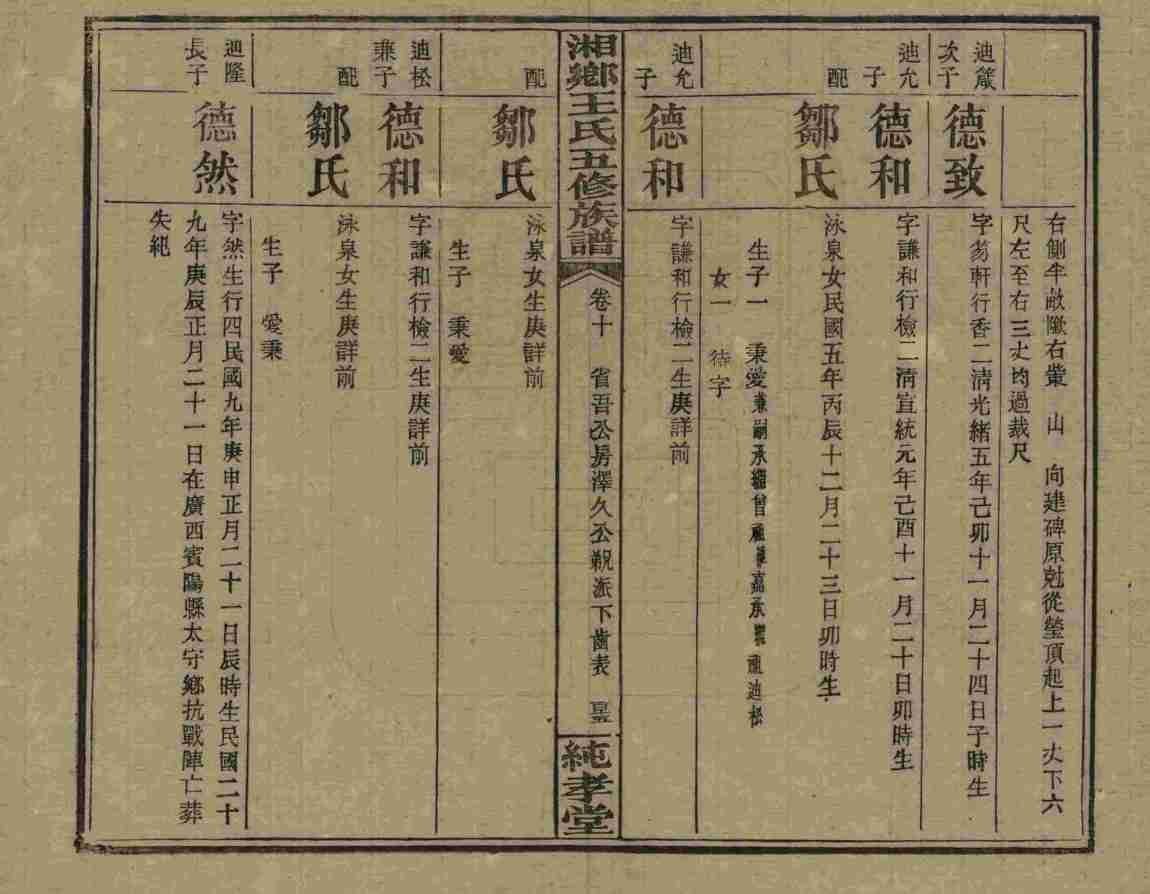 右側牛敵墩右業 山 向建碑原尅從塋頂起上一丈下六
尺左至右三丈均過裁尺
迪箴
次子
德致
字芴軒行香二清光緒五年己卯十一月二十四日子時生
迪允
子
德和
字謙和行檢二清宣統元年己酉十一月二十日卯時生
配
鄒氏
泳泉女民國五年丙辰十二月二十三日卯時生
生子一 秉愛兼嗣承繼曾祖嘉承祖迪松
女一 待字
迪允
子
德和
字謙和行檢二生庚詳前
湘鄉王氏五修族譜
卷十 省吾公房澤久公派下齒表
純孝堂
配
鄒氏
泳泉女生庚詳前
生子 秉愛
迪松
兼子
德和
字謙和行檢二生庚詳前
配
鄒氏
泳泉女生庚詳前
生子 愛秉
迪隆
長子
德然
字然生行四民國九年庚申正月二十一日辰時生民國二十
九年庚辰正月二十一日在廣西賓陽縣太守鄉抗戰陣亡葬
失紀